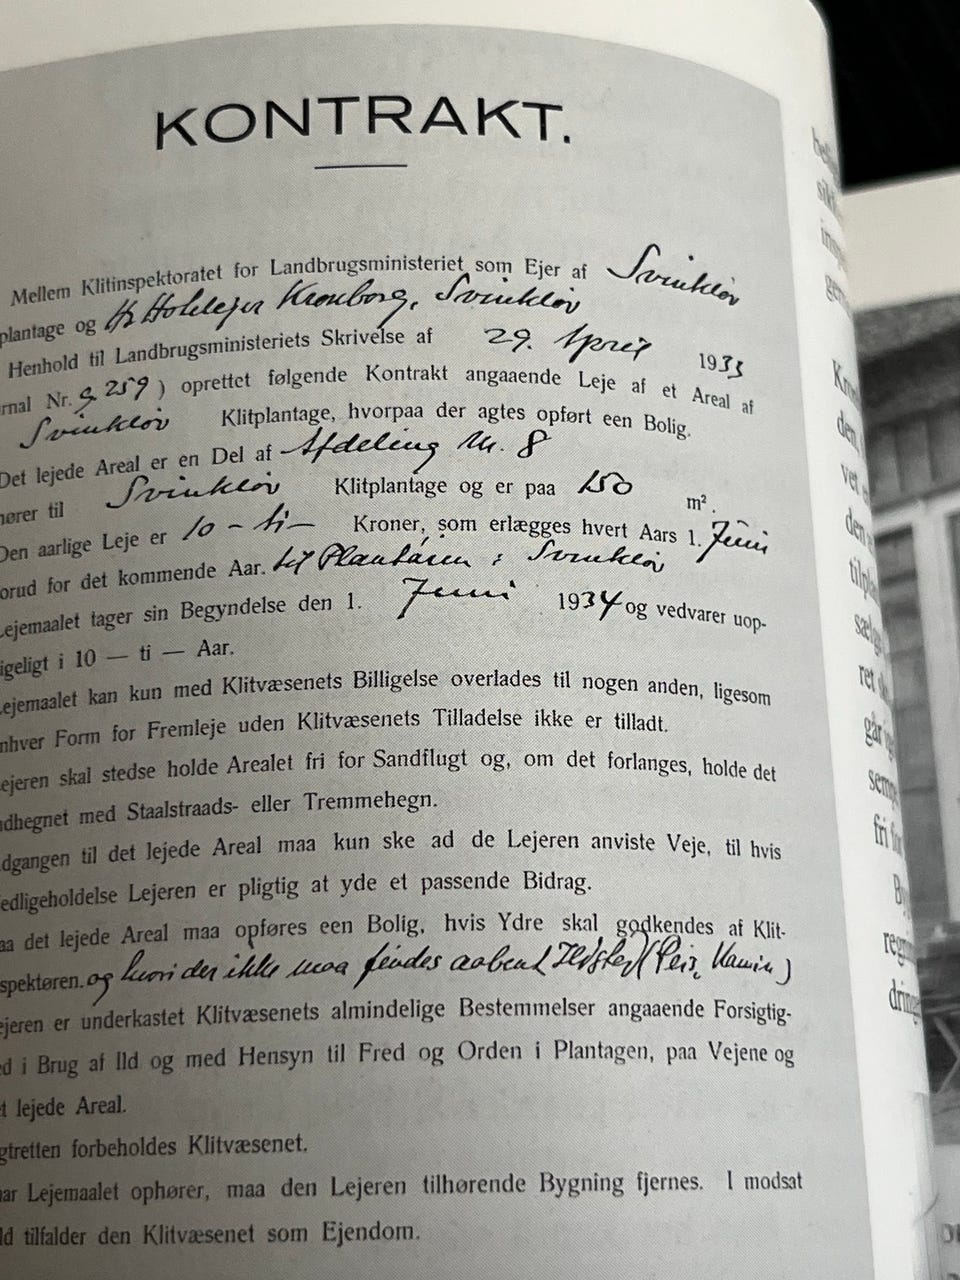 KONTRAKT.
Mellem Klitinspektoratet for Landbrugsministeriet som Ejer af Svinkløv
plantage og Hr Hotelejer Kronborg, Svinkløv
Henhold til Landbrugsministeriets Skrivelse af 29. April 1933
rnal Nr. 9. 259) oprettet følgende Kontrakt angaaende Leje af et Areal af
Svinkløv Klitplantage, hvorpaa der agtes opført een Bolig.
Det lejede Areal er en Del af Afdeling Nr. 8
hører til Svinkløv Klitplantage og er paa 150 m².
Den aarlige Leje er 10 – ti – Kroner, som erlægges hvert Aars 1. Juni
orud for det kommende Aar. til Plantøren i Svinkløv
Lejemaalet tager sin Begyndelse den 1. Juni 1934 og vedvarer uop-
igeligt i 10 — ti — Aar.
Lejemaalet kan kun med Klitvæsenets Billigelse overlades til nogen anden, ligesom
nhver Form for Fremleje uden Klitvæsenets Tilladelse ikke er tilladt.
ejeren skal stedse holde Arealet fri for Sandflugt og, om det forlanges, holde det
ndhegnet med Staalstraads- eller Tremmehegn.
dgangen til det lejede Areal maa kun ske ad de Lejeren anviste Veje, til hvis
edligeholdelse Lejeren er pligtig at yde et passende Bidrag.
aa det lejede Areal maa opføres een Bolig, hvis Ydre skal godkendes af Klit-
spektøren. og hvori der ikke maa findes aabent Ildsted (Pejs, Kamin)
ejeren er underkastet Klitvæsenets almindelige Bestemmelser angaaende Forsigtig-
ed i Brug af Ild og med Hensyn til Fred og Orden i Plantagen, paa Vejene og
et lejede Areal.
gtretten forbeholdes Klitvæsenet.
aar Lejemaalet ophører, maa den Lejeren tilhørende Bygning fjernes. I modsat
ld tilfalder den Klitvæsenet som Ejendom.